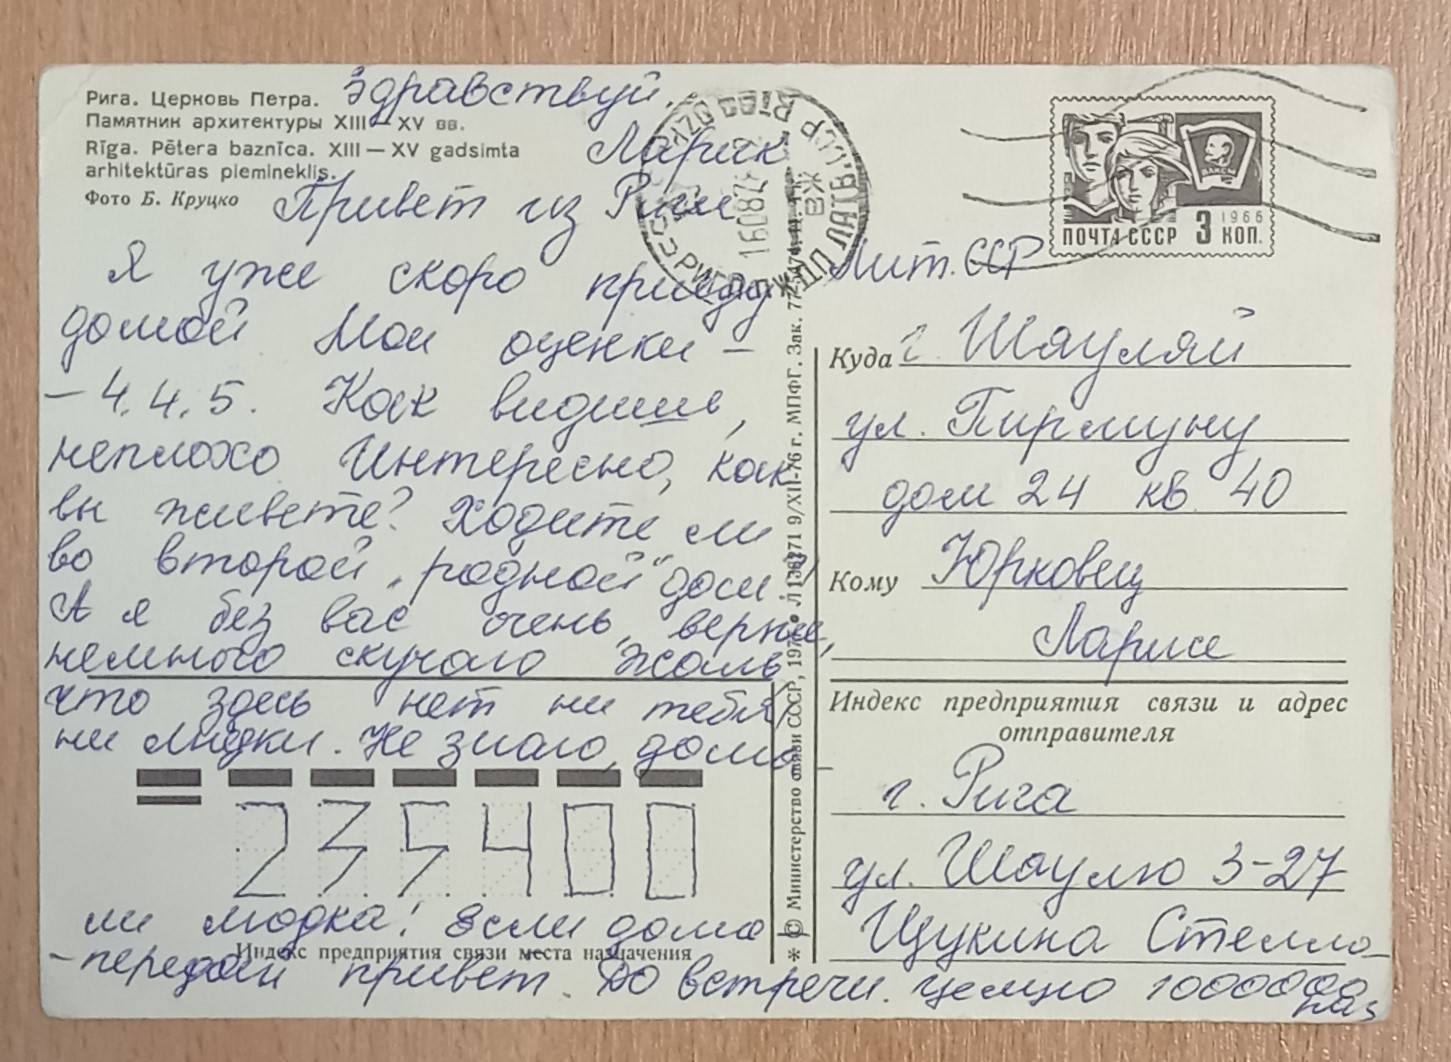 Рига. Церковь Петра.
Памятник архитектуры XIII — XV вв.
Rīga. Pētera baznīca. XIII — XV gadsimta
arhitektūras piemineklis.
Фото Б. Круцко
Здравствуй,
Ларик
Привет из Риги
Я уже скоро приеду
домой Мои оценки –
– 4. 4. 5. Как видишь,
неплохо Интересно, как
вы живете? Ходите ли
во второй „родной" дом
А я без вас очень, вернее,
немного скучаю Жаль
что здесь нет ни тебя,
ни Людки. Не знаю, дома
235400
ли Людка! Если дома –
Индекс предприятия связи места назначения
– передай привет. До встречи. Целую 1000000
раз
© Министерство связи СССР, 197 Л 138271 9/XII-76 г. МПФГ. Зак. 77
ПОЧТА СССР 3 КОП. 1966
Лит. ССР
Куда г. Шауляй
ул. Пирмуну
дом 24 кв. 40
Кому Юрковец
Ларисе
Индекс предприятия связи и адрес
отправителя
г. Рига
ул. Шаулю 3-27
Щукина Стелла